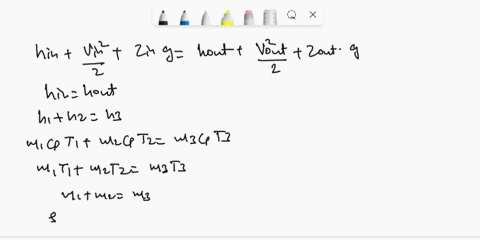 hin + Vin²/2 + Zin g = hout + Vout²/2 + Zout · g
hin = hout
h1 + h2 = h3
m1 Cp T1 + m2 Cp T2 = m3 Cp T3
m1 T1 + m2 T2 = m3 T3
m1 + m2 = m3